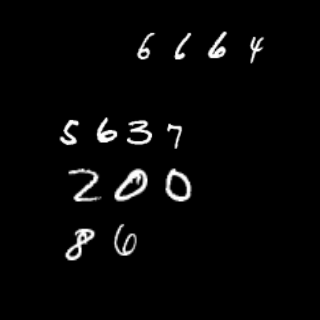 6664
5637
200
86